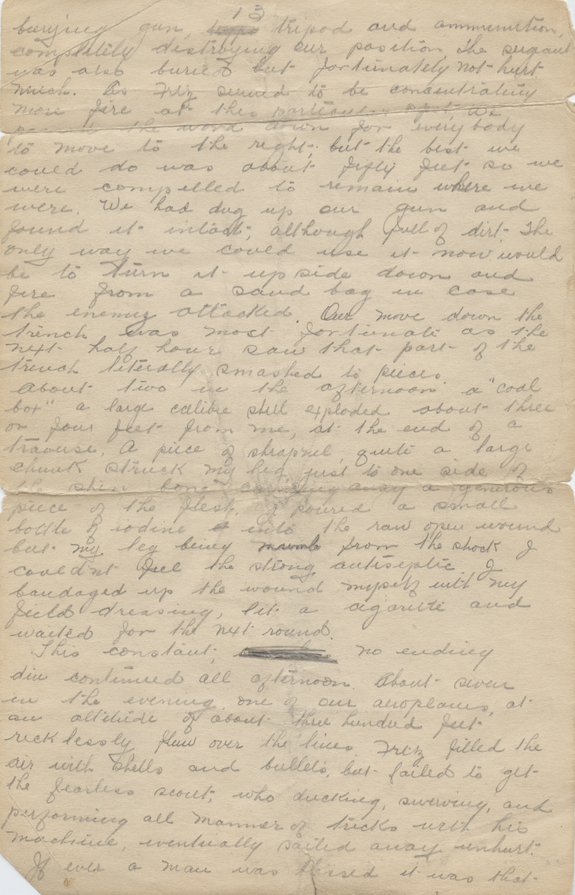 13
burying gun, tripod and ammunition,
completly destroying our position The sergeant
was also buried but fortunately not hurt
much. As Fritz seemed to be concentrating
more fire at this particular spot We
the word down for everybody
to move to the right, but the best we
could do was about fifty feet so we
were compelled to remain where we
were. We had dug up our gun and
found it intact, although full of dirt. The
only way we could use it now would
be to turn it upside down and
fire from a sand bag in case
the enemy attacked. Our move down the
trench was most fortunate as the
next half hour saw that part of the
trench literally smashed to pieces.
About two in the afternoon a "coal
box" a large calibre shell exploded about three
or four feet from me, at the end of a
traverse. A piece of shrapnel, quite a large
chunk struck my leg just to one side of
the shin bone carrying away a generous
piece of the flesh. I poured a small
bottle of iodine into the raw open wound
but my leg being numb from the shock I
could'nt feel the strong antiseptic. I
bandaged up the wound myself with my
field dressing, lit a cigarette and
waited for the next round.
This constant, no ending
din continued all afternoon. About seven
in the evening one of our aeroplanes, at
an altitude of about three hundred feet
recklessly flew over the lines. Fritz filled the
air with shells and bullets, but failed to get
the fearless scout, who ducking, swerving, and
performing all manner of tricks with his
machine, eventually sailed away unhurt.
If ever a man was blessed it was that